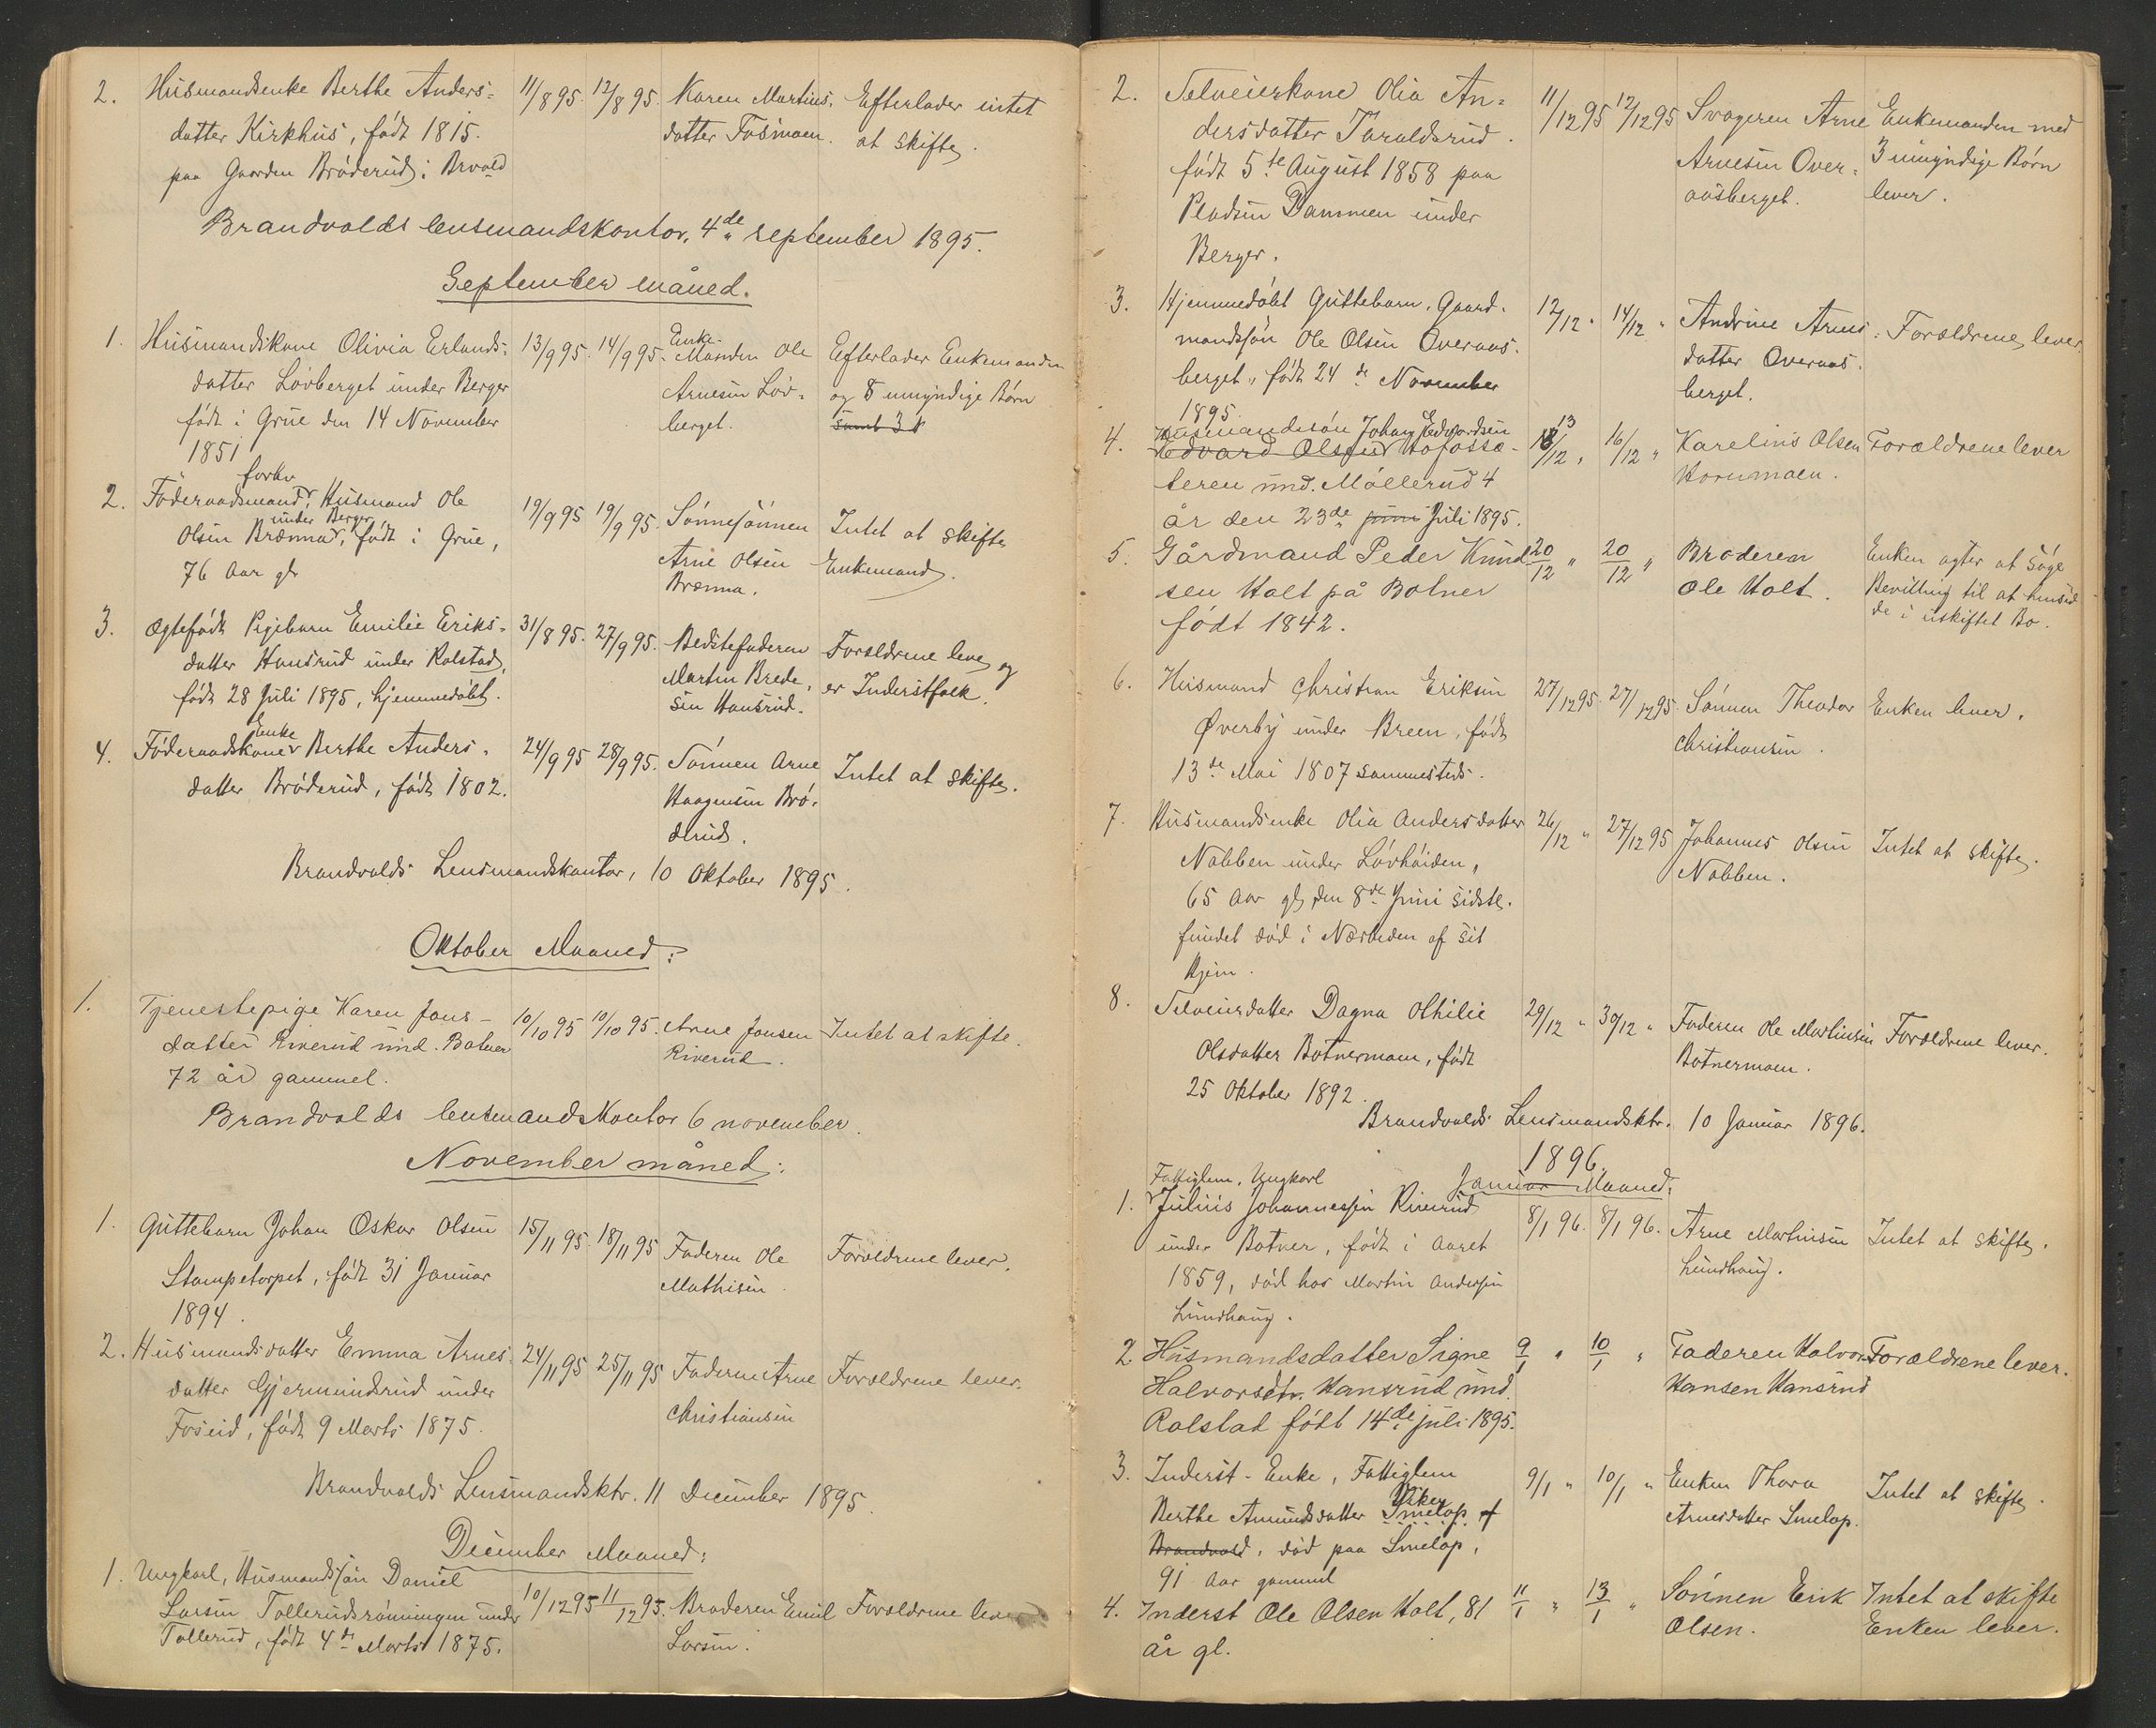 2. Husmandsenke Berthe Anders- 11/8 95. 12/8 95. Karen Martins- Efterlader intet
datter Kirkhus, født 1815. datter Fosmoen. at skifte.
paa Gaarden Brøderud i Brvold
Brandvolds lensmandskontor, 4de september 1895.
September måned.
1. Husmandskone Olivia Erlands- 13/9 95. 14/9 95. Enke-Manden Ole Efterlader Enkemanden
datter Løvberget under Berger Arnesen Løv- og 8 umyndige Børn
født i Grue den 14 November berget. samt 3
1851
2. Føderaadsmand, forhv Husmand Ole 19/9 95 19/9 95. Sønnesønnen Intet at skifte
Olsen Brænna under Berger, født i Grue, Arne Olsen Enkemand.
76 Aar gl Brænna.
3. Ægtefødt Pigebarn Emilie Eriks- 31/8 95. 27/9 95. Bedstefaderen Forældrene leve og
datter Hansrud under Rolstad, Martin Brede- er Inderstfolk.
født 28 Juli 1895, hjemmedøbt. sen Hansrud.
4. Føderaadskone Enke Berthe Anders- 24/9 95 28/9 95. Sønnen Arne Intet at skifte.
datter Brøderud, født 1802. Haagensen Brø-
derud.
Brandvolds Lensmandskontor, 10 Oktober 1895.
Oktober Maaned:
1. Tjenestepige Karen Jons- 10/10 95 10/10 95. Arne Jonsen Intet at skifte.
datter Riverud und. Botner Riverud.
72 år gammel.
Brandvolds lensmandskontor 6 november.
November måned:
1. Guttebarn Johan Oskar Olsen 15/11 95. 18/11 95 Faderen Ole Forældrene lever.
Stampetorpet, født 31 Januar Mathisen.
1894.
2. Husmandsdatter Emma Arnes- 24/11 95 25/11 95 Faderen Arne Forældrene lever.
datter Gjermundrud under Christiansen
Foseid, født 9 Marts 1875.
Brandvolds Lensmandsktr. 11 December 1895.
December Maaned:
1. Ungkarl, Husmandssøn Daniel
Larsen Tollerudsrønningen under 10/12 95 11/12 95. Broderen Emil Forældrene lever
Tollerud, født 4de Marts 1875. Larsen.
2. Selveierkone Olia An- 11/12 95 12/12 95 Svogeren Arne Enkemanden med
dersdatter Taraldsrud. Arnesen Over- 3 umyndige Børn
født 5te August 1858 paa aasberget. lever.
Pladsen Dammen under
Berger.
3. Hjemmedøbt Guttebarn, Gaard- 12/12 " 14/12 " Andrine Arnes- Forældrene lever.
mandssøn Ole Olsen Overaas- datter Overaas-
berget, født 24de November berget.
1895.
4. Husmandssøn Johan Edvardsen 13
Edvard Olsen Hofossæ- 18/12 " 16/12 " Karelius Olsen Forældrene lever
teren und. Møllerud 4 Kornmoen.
år den 23de juni Juli 1895.
5. Gårdmand Peder Knud- 20/12 " 20/12 " Broderen Enken agter at søge
sen Holt på Botner Ole Holt. Bevilling til at hensid-
født 1842. de i uskiftet Bo.
6. Husmand Christian Eriksen 27/12 95. 27/12 95. Sønnen Theodor Enken lever.
Øverby under Breen, født Christiansen.
13de Mai 1807 sammesteds.
7. Husmandsenke Olia Andersdatter 26/12 " 27/12 95 Johannes Olsen Intet at skifte.
Nabben under Løvhøiden, Nabben.
65 Aar gl, den 8de Juni sidstl.
fundet død i Nærheden af sit
Hjem.
8. Selveierdatter Dagna Othilie 29/12 " 30/12 " Faderen Ole Martinsen Forældrene lever.
Olsdatter Botnermoen, født Botnermoen.
25 Oktober 1892.
Brandvolds Lensmandsktr. 10 Januar 1896.
1896.
Januar Maaned:
Fattiglem, Ungkarl
1. Julius Johannessen Riverud 8/1 96. 8/1 96. Arne Martinsen Intet at skifte.
under Botner, født i Aaret Lundhaug.
1859, død hos Martin Andersen
Lundhaug.
2. Husmandsdatter Signe 9/1 " 10/1 " Faderen Halvor Forældrene lever.
Halvorsdtr. Hansrud und. Hansen Hansrud
Rolstad født 14de juli 1895.
3. Inderst-Enke, Fattiglem 9/1 " 10/1 " Enken Thora Intet at skifte.
Berthe Amundsdatter Smelop af Arnesdatter Smelop.
Brandvold, død paa Smelop,
91 Aar gammel
4. Inderst Ole Olsen Holt, 81 11/1 " 13/1 " Sønnen Erik Intet at skifte
år gl. Olsen. Enken lever.